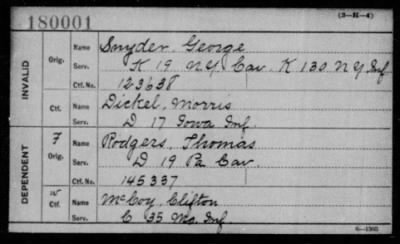 180001
(3-H-4)
INVALID
Orig. Name Snyder, George
Serv. K 19 N.Y. Cav. K 130 N.Y. Inf.
Ctf. No. 123638
Ctf. Name Dickel, Morris
Serv. D 17 Iowa Inf.
DEPENDENT
7 Orig. Name Rodgers, Thomas
Serv. D 19 Pa Cav.
Ctf. No. 145337
Ctf. Name McCoy, Clifton
Serv. C 35 Mo. Inf.